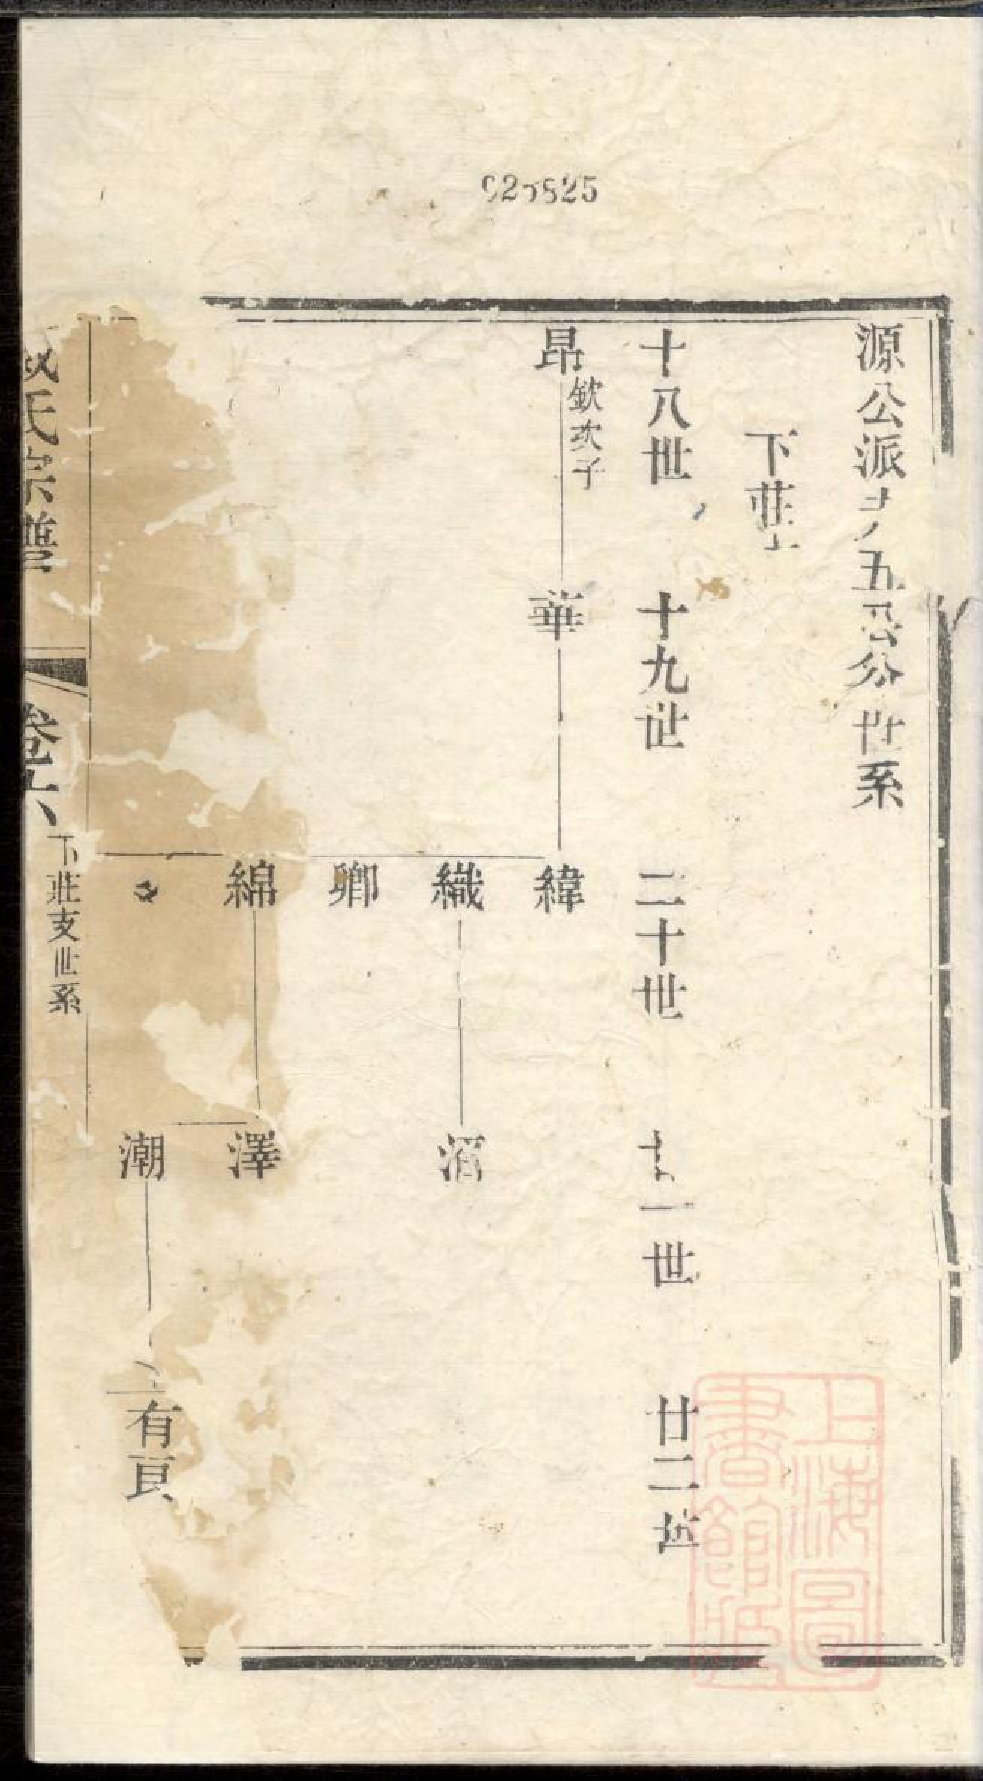 源公派 五公分世系
下莊
十八世 十九世 二十世 一世 廿二世
昂 欽次子 華 緯
織 滔
卿
綿 澤
潮 有
氏宗譜 卷六 下莊支世系
上海圖書館藏